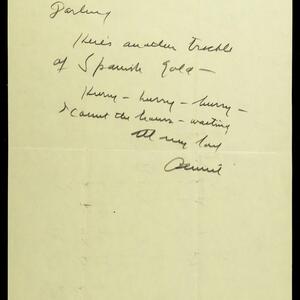 Darling
Here's another trickle
of Spanish Gold —
Hurry — hurry — hurry —
I count the hours — waiting
All my love